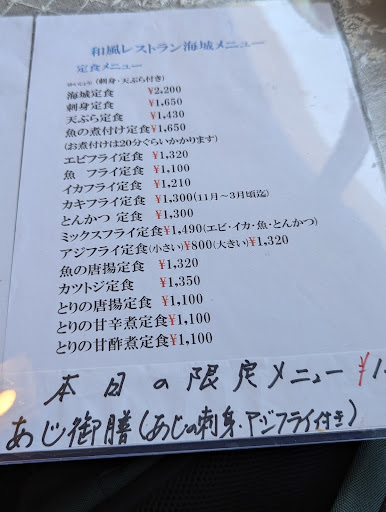 和風レストラン海城メニュー
定食メニュー
(刺身・天ぷら付き)
海城定食 ¥2,200
刺身定食 ¥1,650
天ぷら定食 ¥1,430
魚の煮付け定食¥1,650
(お煮付けは20分ぐらいかかります)
エビフライ定食 ¥1,320
魚 フライ定食 ¥1,100
イカフライ定食 ¥1,210
カキフライ定食 ¥1,300(11月～3月頃迄)
とんかつ 定食 ¥1,300
ミックスフライ定食¥1,490(エビ・イカ・魚・とんかつ)
アジフライ定食(小さい)¥800(大きい)¥1,320
魚の唐揚定食 ¥1,320
カツトジ定食 ¥1,350
とりの唐揚定食 ¥1,100
とりの甘辛煮定食¥1,100
とりの甘酢煮定食¥1,100
本日の限定メニュー ¥1
あじ御膳(あじの刺身・アジフライ付き)